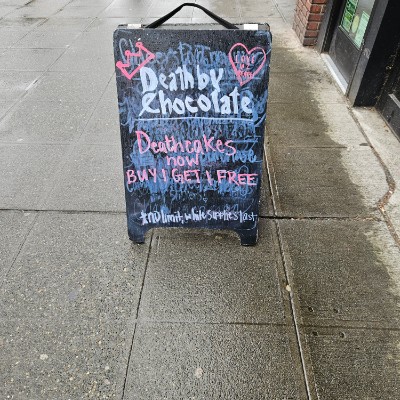 Death by
Chocolate
Deathcakes
now
BUY 1 GET 1 FREE
*no limit, while supplies last